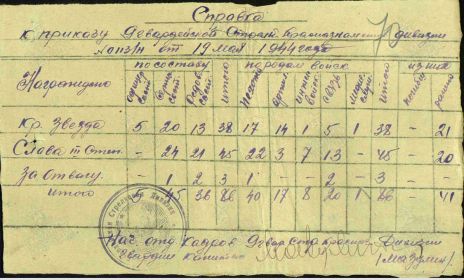 Справка
к приказу Гвардейской Стрелк. Краснознаменной дивизии
№ /н от 19 мая 1944 года
Награждено
по составу
по родам войск
из них
офицер. сост.
серж. сост.
рядов. сост.
итого
пехота
артил.
инжен. войск
связь
медиц. служ.
итого
ранено
Кр. Звезда 5 20 13 38 17 14 1 5 1 38 - 21
Слава III степ. - 24 21 45 22 3 7 13 - 45 - 20
За отвагу - 1 2 3 1 - - 2 - 3 -
Итого 45 36 86 40 17 8 20 1 86 - 41
Нач. отд. кадров Гвар. Стр. Красноз. Дивизии
гвардии капитан